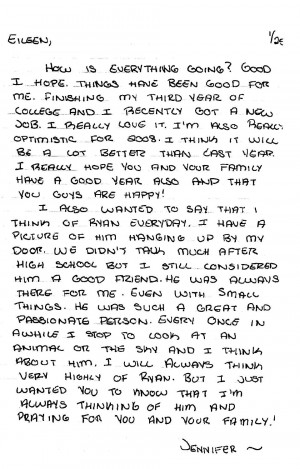 EILEEN,
1/2
HOW IS EVERYTHING GOING? GOOD
I HOPE. THINGS HAVE BEEN GOOD FOR
ME. FINISHING MY THIRD YEAR OF
COLLEGE AND I RECENTLY GOT A NEW
JOB. I REALLY LOVE IT. I'M ALSO REALLY
OPTIMISTIC FOR 2008. I THINK IT WILL
BE A LOT BETTER THAN LAST YEAR.
I REALLY HOPE YOU AND YOUR FAMILY
HAVE A GOOD YEAR ALSO AND THAT
YOU GUYS ARE HAPPY!
I ALSO WANTED TO SAY THAT I
THINK OF RYAN EVERYDAY. I HAVE A
PICTURE OF HIM HANGING UP BY MY
DOOR. WE DIDN'T TALK MUCH AFTER
HIGH SCHOOL BUT I STILL CONSIDERED
HIM A GOOD FRIEND. HE WAS ALWAYS
THERE FOR ME. EVEN WITH SMALL
THINGS. HE WAS SUCH A GREAT AND
PASSIONATE PERSON. EVERY ONCE IN
AWHILE I STOP TO LOOK AT AN
ANIMAL OR THE SKY AND I THINK
ABOUT HIM. I WILL ALWAYS THINK
VERY HIGHLY OF RYAN. BUT I JUST
WANTED YOU TO KNOW THAT I'M
ALWAYS THINKING OF HIM AND
PRAYING FOR YOU AND YOUR FAMILY.
JENNIFER ~